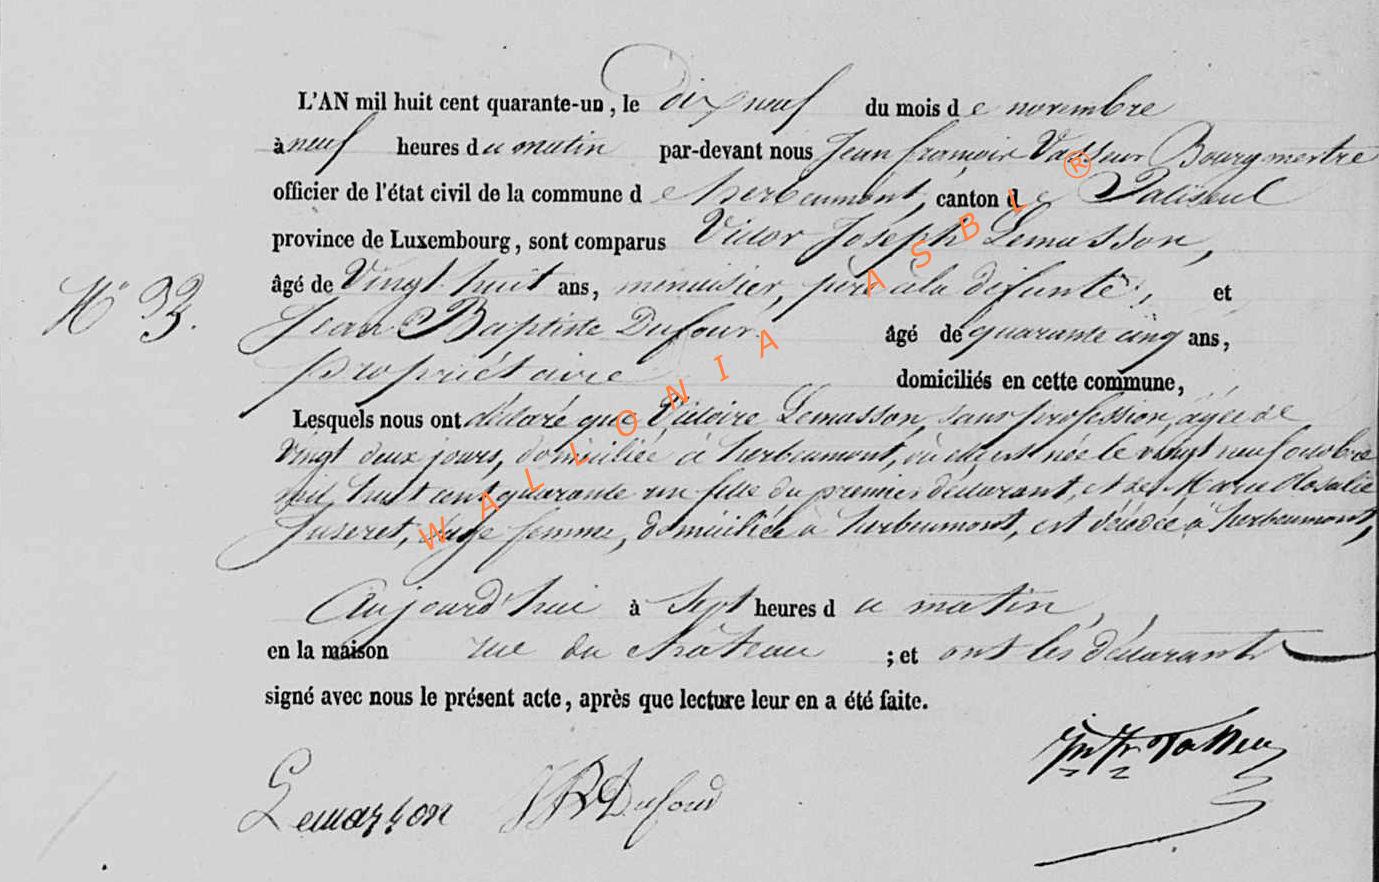 L'AN mil huit cent quarante-un, le dix neuf du mois de novembre
à neuf heures du matin par-devant nous Jean françois Vasseur Bourgmestre
officier de l'état civil de la commune de herbeumont, canton de Paliseul
province de Luxembourg, sont comparus Victor Joseph Lemasson,
âgé de Vingt huit ans, menuisier, père à la défunte, et
N° 33.
Jean Baptiste Dufour âgé de quarante cinq ans,
propriétaire domiciliés en cette commune,
Lesquels nous ont déclaré que Victoire Lemasson, sans profession, agée de
Vingt deux jours, domiciliée à herbeumont, où elle est née le vingt neuf octobre
mil huit cent quarante un fille du premier déclarant, et de Marie Rosalie
Juseret, sage femme, domiciliée à herbeumont, est décédée à herbeumont,
Aujourd'hui à Sept heures du matin,
en la maison rue du château ; et ont les déclarants
signé avec nous le présent acte, après que lecture leur en a été faite.
Lemasson JB Dufour Jn Fr Vasseur
WALLONIA ASBL ®